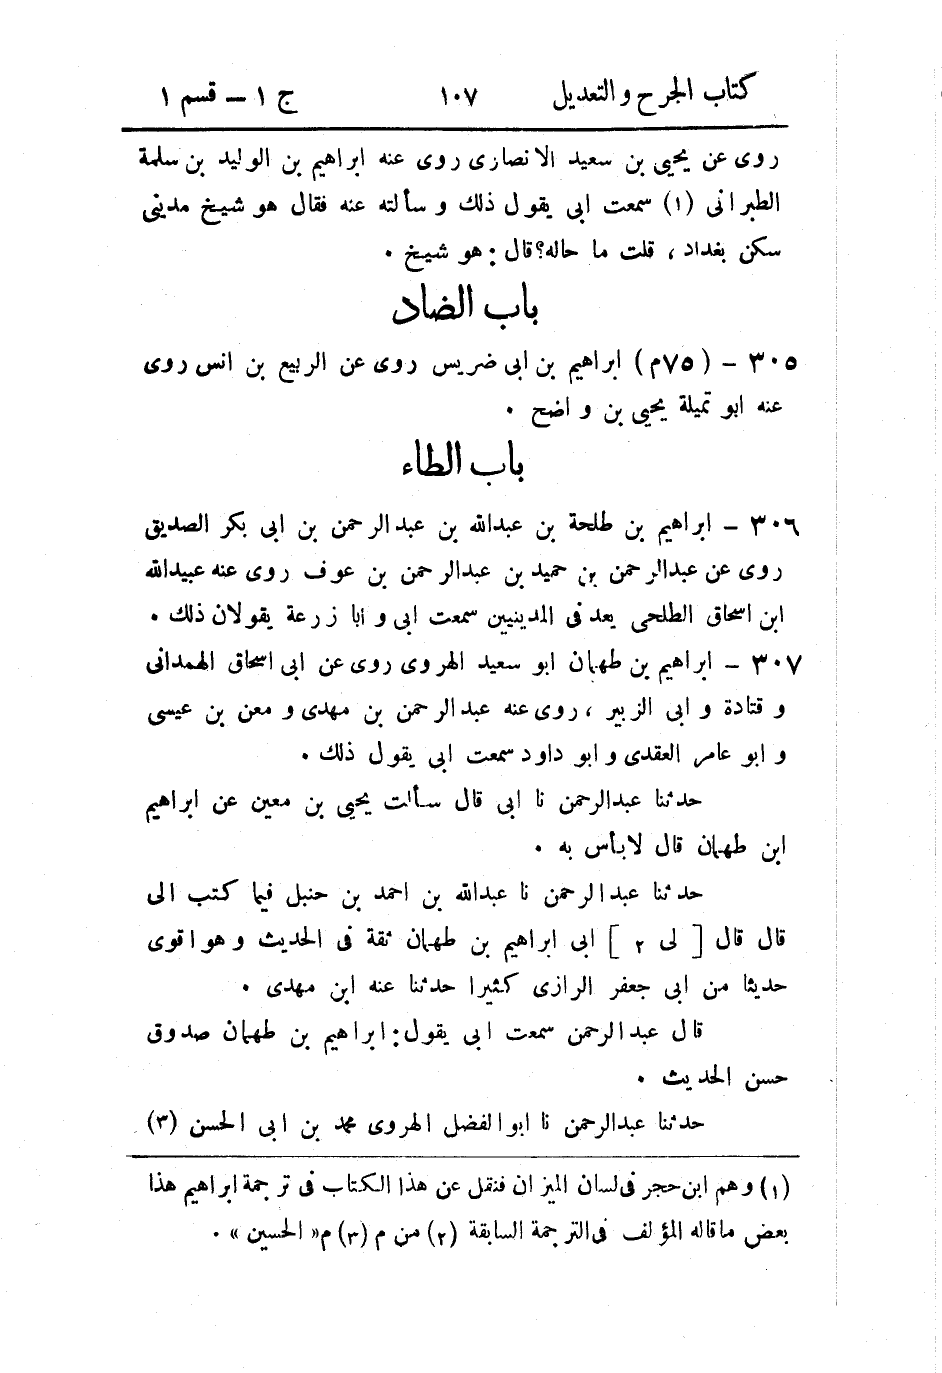 كتاب الجرح والتعديل ١٠٧ ج ١ – قسم ١
روى عن يحيى بن سعيد الانصارى روى عنه ابراهيم بن الوليد بن سلمة
الطبرانى (١) سمعت ابى يقول ذلك وسألته عنه فقال هو شيخ مدينى
سكن بغداد، قلت ما حاله؟ قال: هو شيخ .
باب الضاد
٣٠٥ – (٧٥م) ابراهيم بن ابى ضريس روى عن الربيع بن انس روى
عنه ابو تميلة يحيى بن واضح .
باب الطاء
٣٠٦ – ابراهيم بن طلحة بن عبدالله بن عبدالرحمن بن ابى بكر الصديق
روى عن عبدالرحمن بن حميد بن عبدالرحمن بن عوف روى عنه عبيدالله
ابن اسحاق الطلحى يعد فى المدينيين سمعت ابى وابا زرعة يقولان ذلك .
٣٠٧ – ابراهيم بن طهمان ابو سعيد الهروى روى عن ابى اسحاق الهمدانى
و قتادة و ابى الزبير، روى عنه عبدالرحمن بن مهدى و معن بن عيسى
و ابو عامر العقدى و ابو داود سمعت ابى يقول ذلك .
حدثنا عبدالرحمن نا ابى قال سألت يحيى بن معين عن ابراهيم
ابن طهمان قال لابأس به .
حدثنا عبدالرحمن نا عبدالله بن احمد بن حنبل فيما كتب الى
قال قال [ لى ٢ ] ابى ابراهيم بن طهمان ثقة فى الحديث وهو اقوى
حديثا من ابى جعفر الرازى كثيرا حدثنا عنه ابن مهدى .
قال عبدالرحمن سمعت ابى يقول: ابراهيم بن طهمان صدوق
حسن الحديث .
حدثنا عبدالرحمن نا ابوالفضل الهروى محمد بن ابى الحسن (٣)
(١) وهم ابن حجر فى لسان الميزان فنقل عن هذا الكتاب فى ترجمة ابراهيم هذا
بعض ماقاله المؤلف فى الترجمة السابقة (٢) من م (٣) م« الحسين » .